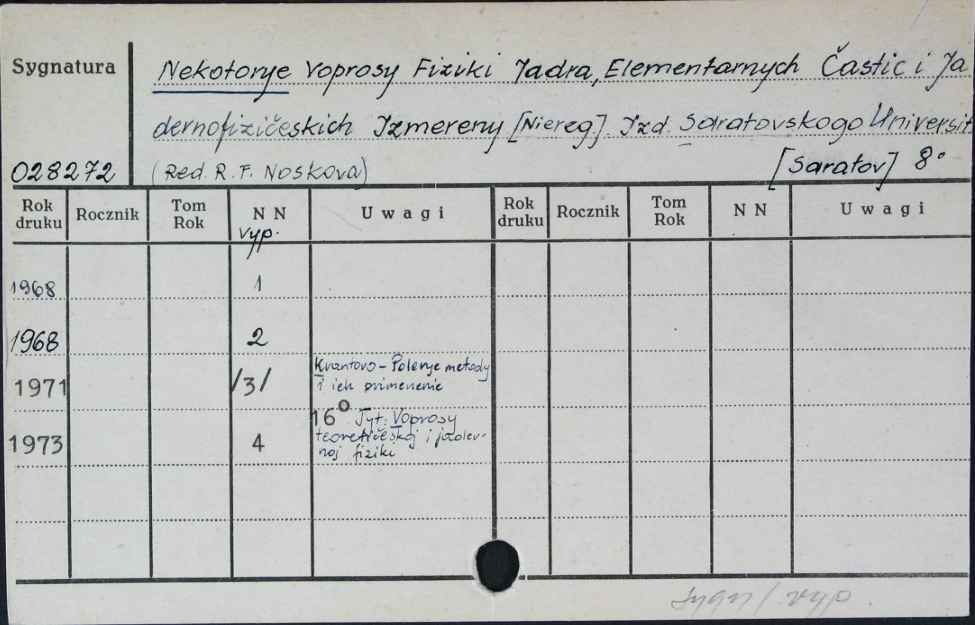 Sygnatura
Nekotorye Voprosy Fiziki Jadra, Elementarnych Častic i Ja
dernofizičeskich Izmereny [Niereg]. Izd. Saratovskogo Universit
[Saratov] 8°
028272 (Red. R. F. Noskova)
Rok druku Rocznik Tom Rok NN Uwagi Rok druku Rocznik Tom Rok NN Uwagi
vyp.
1968 1
1968 2
1971 /3/ Kvantovo-Polevye metody
i ich primenenie
1973 4 16° Tyt. Voprosy
teoretičeskoj i jadernoj
noj fiziki